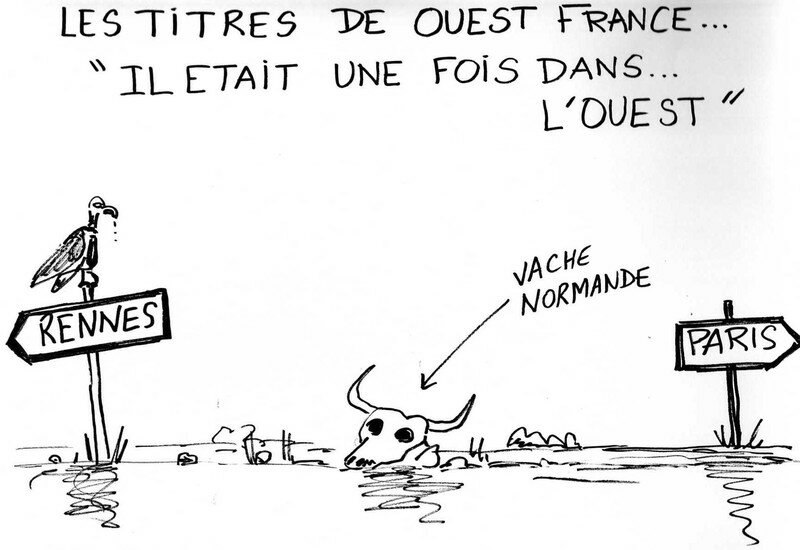 LES TITRES DE OUEST FRANCE...
"IL ETAIT UNE FOIS DANS...
L'OUEST"
VACHE
NORMANDE
RENNES
PARIS